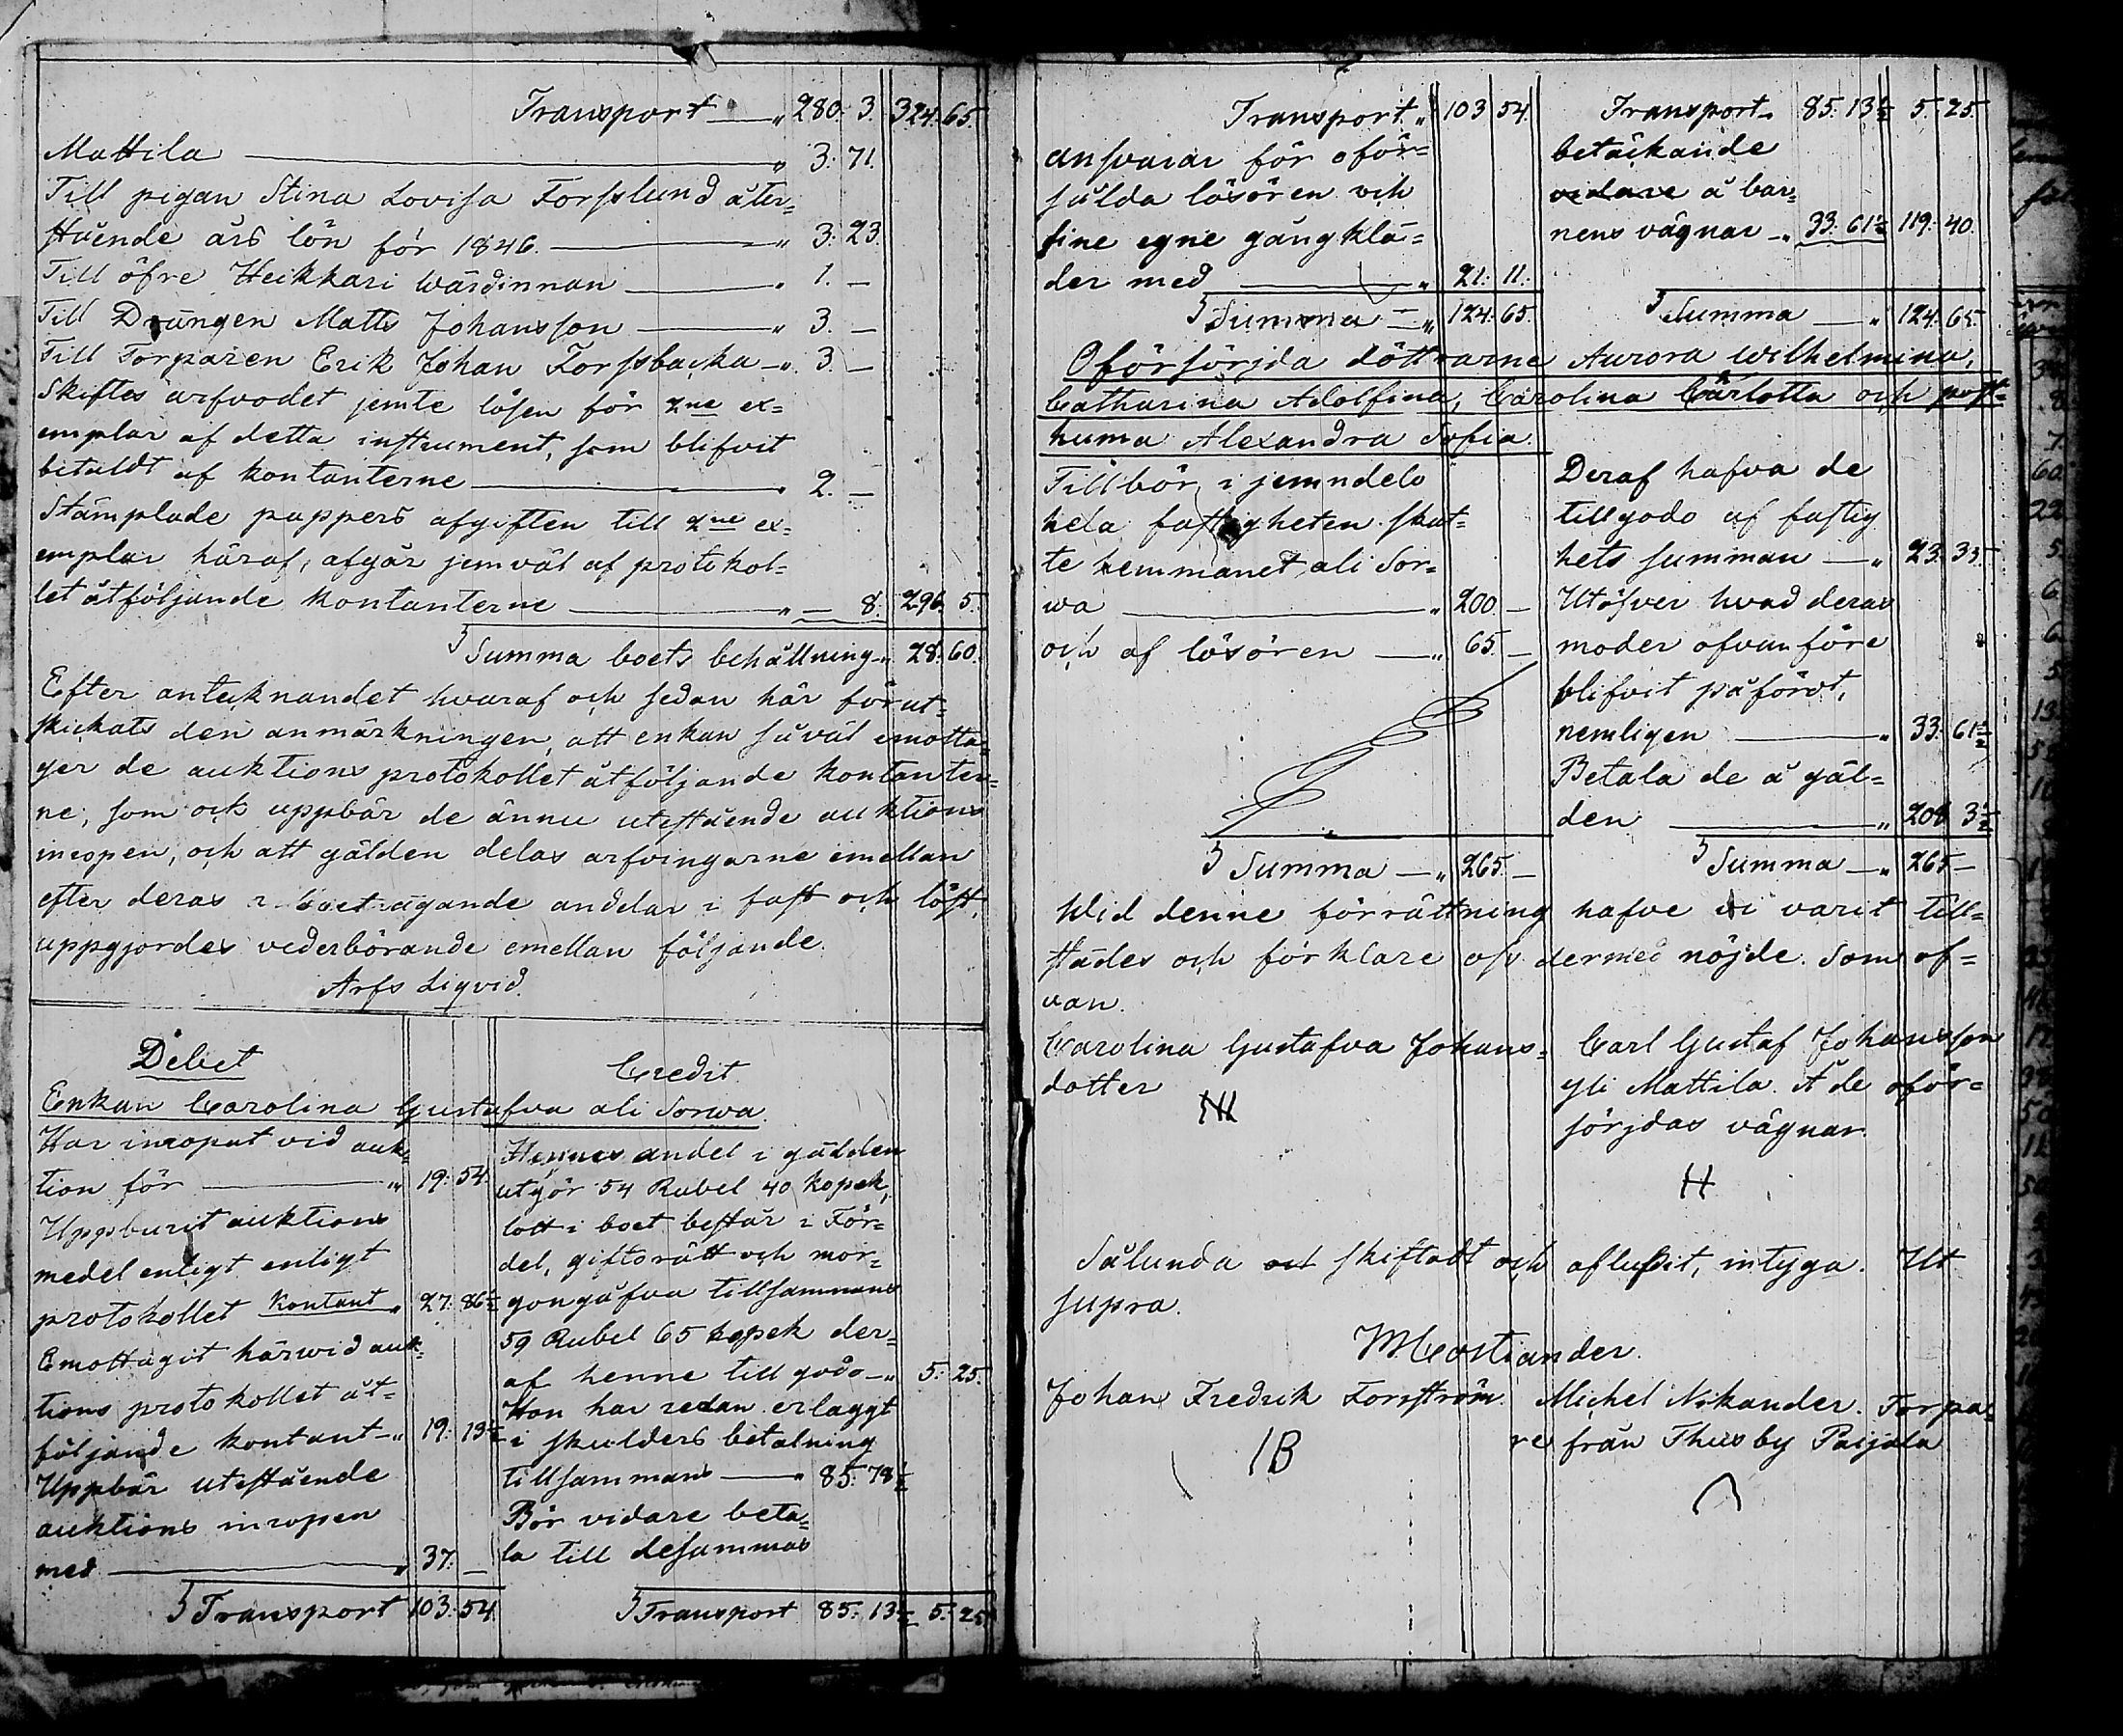 Transport — „ 280. 3. 324. 65.
Mattila — „ 3. 71.
Till pigan Stina Lovisa Forsslund åter-
stående års lön för 1846. — „ 3. 23.
Till öfre Heikkari Wärdinnan — „ 1. —
Till Drängen Matts Johansson — „ 3. —
Till Torparen Erik Johan Forssbacka — „ 3. —
Skiftes arfvodet jemte lösen för 2ne ex-
emplar af detta instrument, som blifvit
betaldt af kontanterne — „ 2. —
Stämplade pappers afgiften till 2ne ex-
emplar häraf, afgår jemväl af protokol-
let åtföljande kontanterne — „ — 8. 296. 5.
Summa boets behållning „ 28. 60.
Efter antecknandet hvaraf och sedan här förut-
skickats den anmärkningen, att enkan såväl emotta-
ger de auktions protokollet åtföljande kontanter-
ne, som ock uppbär de ännu utestående auktions
inropen, och att gälden delas arfvingarne emellan
efter deras i boet ägande andelar i fast och löst,
uppgjordes vederbörande emellan följande.
Arfs Liqvid.
Debet
Credit.
Enkan Carolina Gustafva ali Sorwa.
Har inropat vid auk-
tion för — „ 19. 54.
Uppburit auktions
medel enligt enligt
protokollet Kontant „ 27. 86½
Emottagit härwid auk-
tions protokollet åt-
följande kontant — „ 19. 13½
Uppbär utestående
auktions inropen
med — „ 37. —
Transport 103. 54.
Hennes andel i gälden
utgör 54 Rubel 40 kopek,
lott i boet består i För-
del, giftorätt och mor-
gongåfva tillsammans
59 Rubel 65 kopek der-
af henne till godo — „ 5. 25.
Hon har redan erlaggt
i skulders betalning
tillsammans — „ 85. 78½
Bör vidare beta-
la till desammas
Transport 85. 13½ 5. 25.
Transport „ 103 54.
ansvarar för oför-
sålda lösören och
sine egne gångklä-
der med — „ 21. 11.
Summa — „ 124. 65.
Transport „ 85. 13½ 5. 25.
betäckande
vidare å bar-
nens vägnar „ 33. 61½ 119. 40.
Summa — „ 124. 65.
Oförsörjda döttrarne Aurora Wilhelmina,
Catharina Adolfina, Carolina Carlotta och post-
huma Alexandra Sofia.
Tillbör i jemndela
hela fastigheten skat-
te hemmanet ali Sor-
wa — „ 200. —
och af lösören — „ 65. —
Summa — „ 265. —
Deraf hafva de
tillgodo af fastig
hets summan — „ 23. 35.
Utöfver hvad deras
moder ofvanföre
blifvit påfördt,
nemligen — „ 33. 61½
Betala de å gäl-
den — „ 208 3½
Summa — „ 265 —
Wid denne förrättning hafve vi varit till-
städes och förklare oss dermed nöjde. Som of-
van.
Carolina Gustafva Johans-
dotter
Carl Gustaf Johansson
yli Mattila. Å de oför-
sörjdas vägnar.
H
Sålunda skiftadt och aflupit, intyga. Ut
supra.
M Costiander.
Johan Fredrik Forsström.
IB
Michel Nikander. Torpa-
re från Thusby Paijala